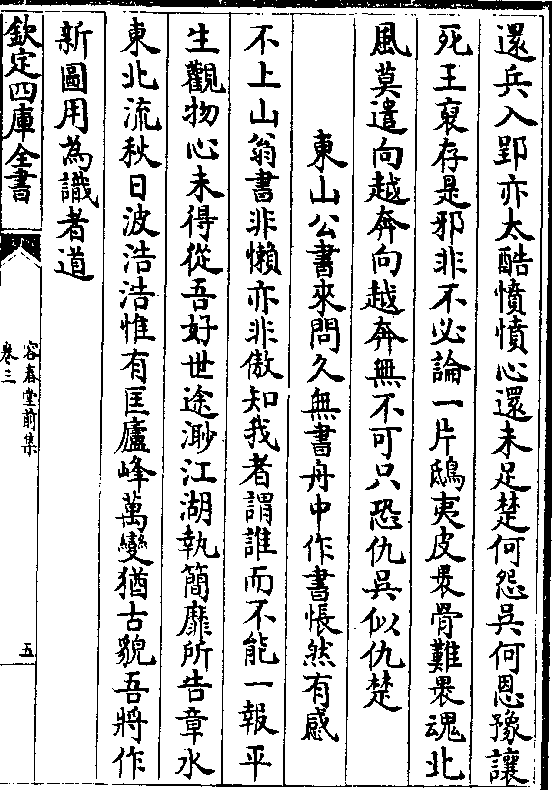 還兵入郢亦太酷憤憤心還未足楚何怨吳何恩豫讓
死王裒存是邪非不必論一片鴟夷皮褁骨難褁魂北
風莫遣向越奔向越奔無不可只恐仇吳似仇楚
東山公書來問久無書舟中作書悵然有感
不上山翁書非懶亦非傲知我者謂誰而不能一報平
生觀物心未得從吾好世途渺江湖執簡靡所告章水
東北流秋日波浩浩惟有匡廬峰萬變猶古貌吾將作
新圖用為識者道
欽定四庫全書
容春堂前集
卷三
五